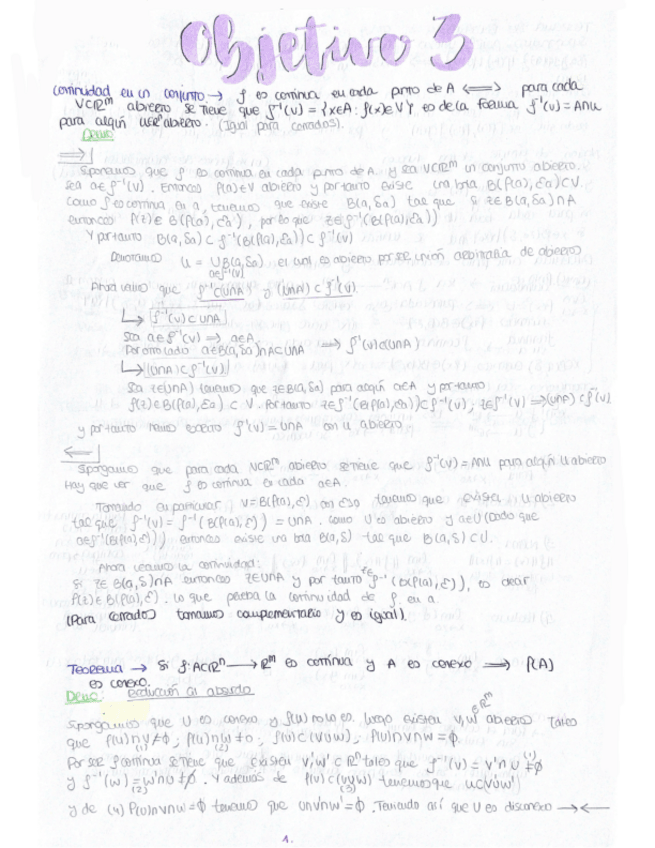 Objetivo 3
continuidad en un conjunto → f es continua en cada punto de A ⟺ para cada
V⊂ℝᵐ abierto se tiene que f⁻¹(V) = {x∈A : f(x)∈V} es de la forma f⁻¹(V) = A∩U
para algún U abierto. (Igual para cerrados).
Demo
⟹
Supongamos que f es continua en cada punto de A y sea V⊂ℝᵐ un conjunto abierto.
Sea a∈f⁻¹(V). Entonces f(a)∈V abierto y por tanto existe una bola B(f(a), εa)⊂V.
Como f es continua en a, tenemos que existe B(a,δa) tal que si z∈B(a,δa)∩A
entonces f(z)∈B(f(a),εa), por lo que z∈f⁻¹(B(f(a),εa))
Y por tanto B(a,δa) ⊂ f⁻¹(B(f(a),εa)) ⊂ f⁻¹(V)
Denotamos U = ∪B(a,δa) el cual es abierto por ser unión arbitraria de abierto
a∈f⁻¹(V)
Ahora que y (U∩A) ⊂ f⁻¹(V).
↳ f⁻¹(V) ⊂ U∩A
Sea a∈f⁻¹(V) ⟹ a∈A.
Por otro lado a∈B(a,δa)∩A⊂U∩A ⟹ f⁻¹(V)⊂(U∩A)
↳ (U∩A) ⊂ f⁻¹(V)
Sea z∈(U∩A) tenemos que z∈B(a,δa) para algún a∈A y por tanto
f(z)∈B(f(a),εa) ⊂ V. Por tanto z∈f⁻¹(B(f(a),εa))⊂f⁻¹(V), z∈f⁻¹(V) ⟹(U∩A)⊂f⁻¹(V)
y por tanto hemos escrito f⁻¹(V) = U∩A con U abierto
⟸
Supongamos que para cada V⊂ℝᵐ abierto se tiene que f⁻¹(V) = A∩U para algún U abierto
Hay que ver que f es continua en cada a∈A.
Tomando en particular V=B(f(a),ε) con ε>0 tenemos que existe U abierto
tal que f⁻¹(V) = f⁻¹(B(f(a),ε)) = U∩A. Como U es abierto y a∈U (dado que
a∈f⁻¹(B(f(a),ε))) entonces existe una bola B(a,δ) tal que B(a,δ)⊂U.
Ahora veamos la continuidad:
Si z∈B(a,δ)∩A entonces z∈U∩A y por tanto z∈f⁻¹(B(f(a),ε)), es decir
f(z)∈B(f(a),ε). Lo que prueba la continuidad de f en a.
(Para cerrados tomamos complementario y es igual).
Teorema → Si f: A⊂ℝⁿ ⟶ ℝᵐ es continua y A es conexo ⟹ f(A)
es conexo.
Demo: Reducción al absurdo
Supongamos que U es conexo y f(U) no lo es. Luego existen V,W ∈ℝᵐ abiertos tales
que f(U)∩V≠∅ (1); f(U)∩W≠∅ (2); f(U)⊂(V∪W), f(U)∩V∩W=∅.
Por ser f continua se tiene que existen V',W'⊂ℝⁿ tales que f⁻¹(V) = V'∩U ≠∅ (1)
y f⁻¹(W) = W'∩U ≠∅ (2). Y además de f(U)⊂(V∪W) (3) tenemos que U⊂(V'∪W')
y de (4) f(U)∩V∩W=∅ tenemos que U∩V'∩W'=∅. Teniendo así que U es disconexo →←
1.